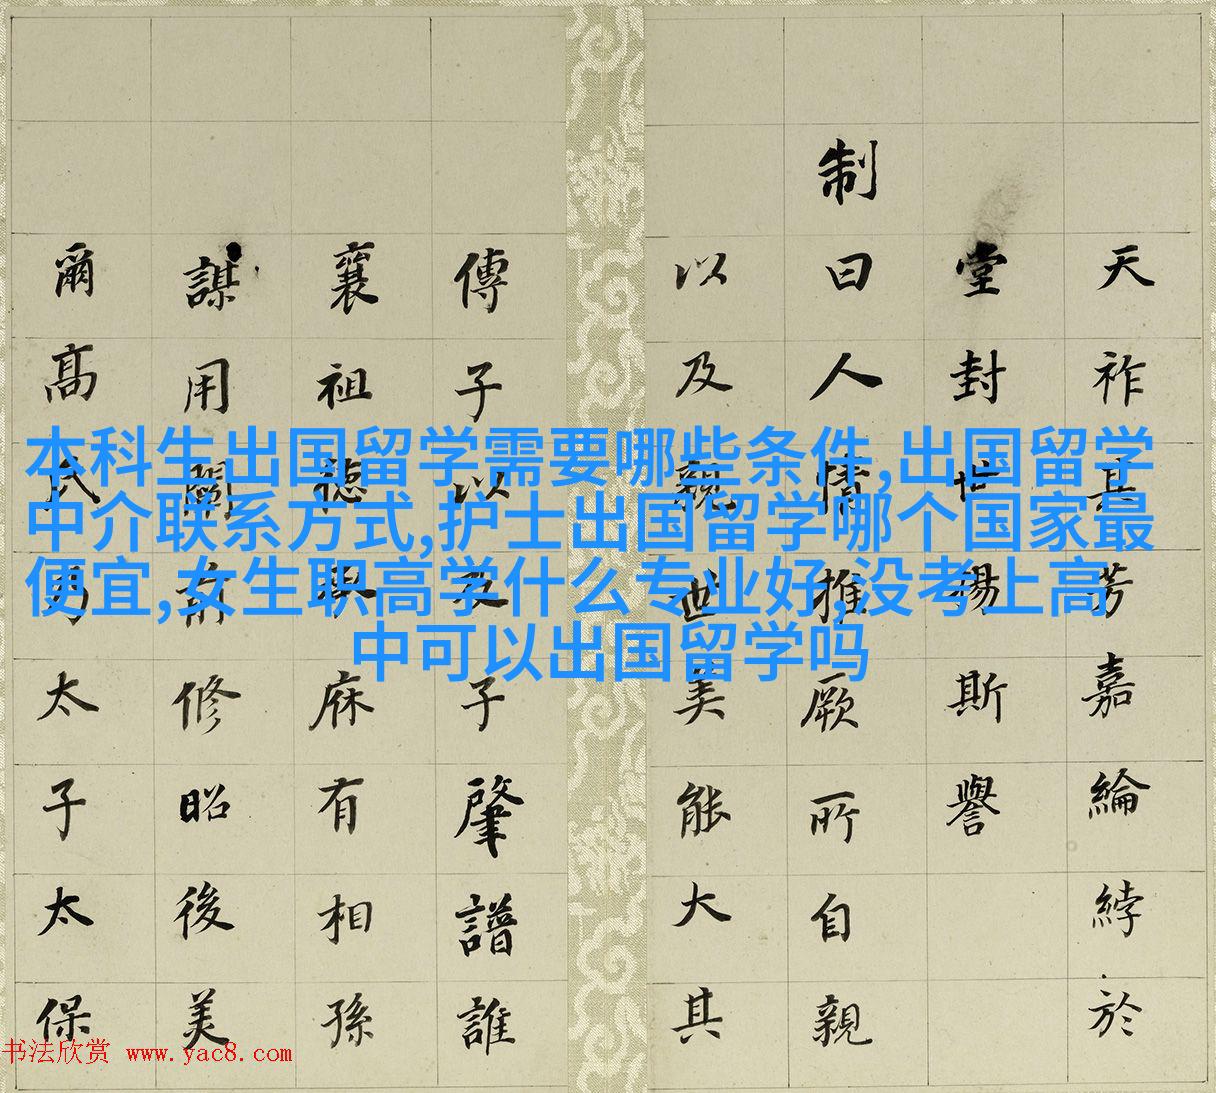 本科生出国留学需要哪些条件,出国留学
中介联系方式,护士出国留学哪个国家最
便宜,女生职高学什么专业好,没考上高
中可以出国留学吗
天祚其芳嘉綸綍於
堂封世錫斯譽
制曰人情推厥所自親
以及親世美能大其
傳子以及子肇譜誰
襄祖德麻有相孫
謀用闡前修昭後美
爾高氏乃太子太保
书法欣赏 www.yac8.com